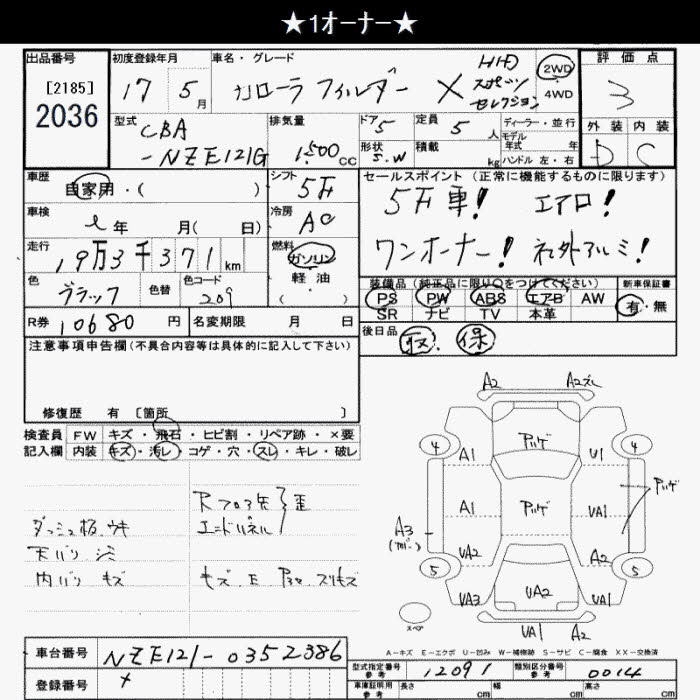 ★1オーナー★
出品番号 [2185] 2036
初度登録年月 17 5月
車名・グレード カローラ フィルダー X HID スポーツ セレクション
2WD 4WD
評価点 3
外装 内装 D C
型式 CBA-NZE121G
排気量 1,500cc
ドア 5 形状 S.W
定員 5人 積載 kg
ディーラー・並行
モデル年式 年
ハンドル 左・右
車歴 自家用・( )
シフト 5F
車検 年 月( 日)
冷房 AC
走行 19万3千371km
燃料 ガソリン 軽油 ( )
色 ブラック 色替 色コード 209
R券 10680円 名変期限 月 日
セールスポイント (正常に機能するものに限ります)
5F車! エアロ!
ワンオーナー! 社外アルミ!
装備品 (純正品に限り○をつけてください)
PS PW ABS エアB AW
SR ナビ TV 本革
新車保証書 有・無
後日品 取 保
注意事項申告欄(不具合内容等は具体的に記入して下さい)
修復歴 有 [箇所 ]
検査員記入欄
FW キズ・飛石・ヒビ割・リペア跡・×要
内装 キズ・汚レ・コゲ・穴・スレ・キレ・破レ
Rフロア先 歪
エンドパネル
ダッシュ板 ウキ
天バリ シミ
内バリ キズ
A2 A2スレ
4 4
A1 U1
A1 UA1
A3
UA2 A2
5 5
UA3 UA2 UA1
スペア
UA1 A2
A-キズ E-エクボ U-凹み W-補修跡 S-サビ C-腐食 XX-交換済
車台番号 NZE121-0352386
登録番号
型式指定番号 参考 12091
類別区分番号 参考 0014
車庫証明用 参考 長さ cm 幅 cm 高さ cm